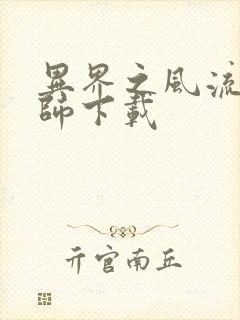 異界之風流
師下載
亓官南丘